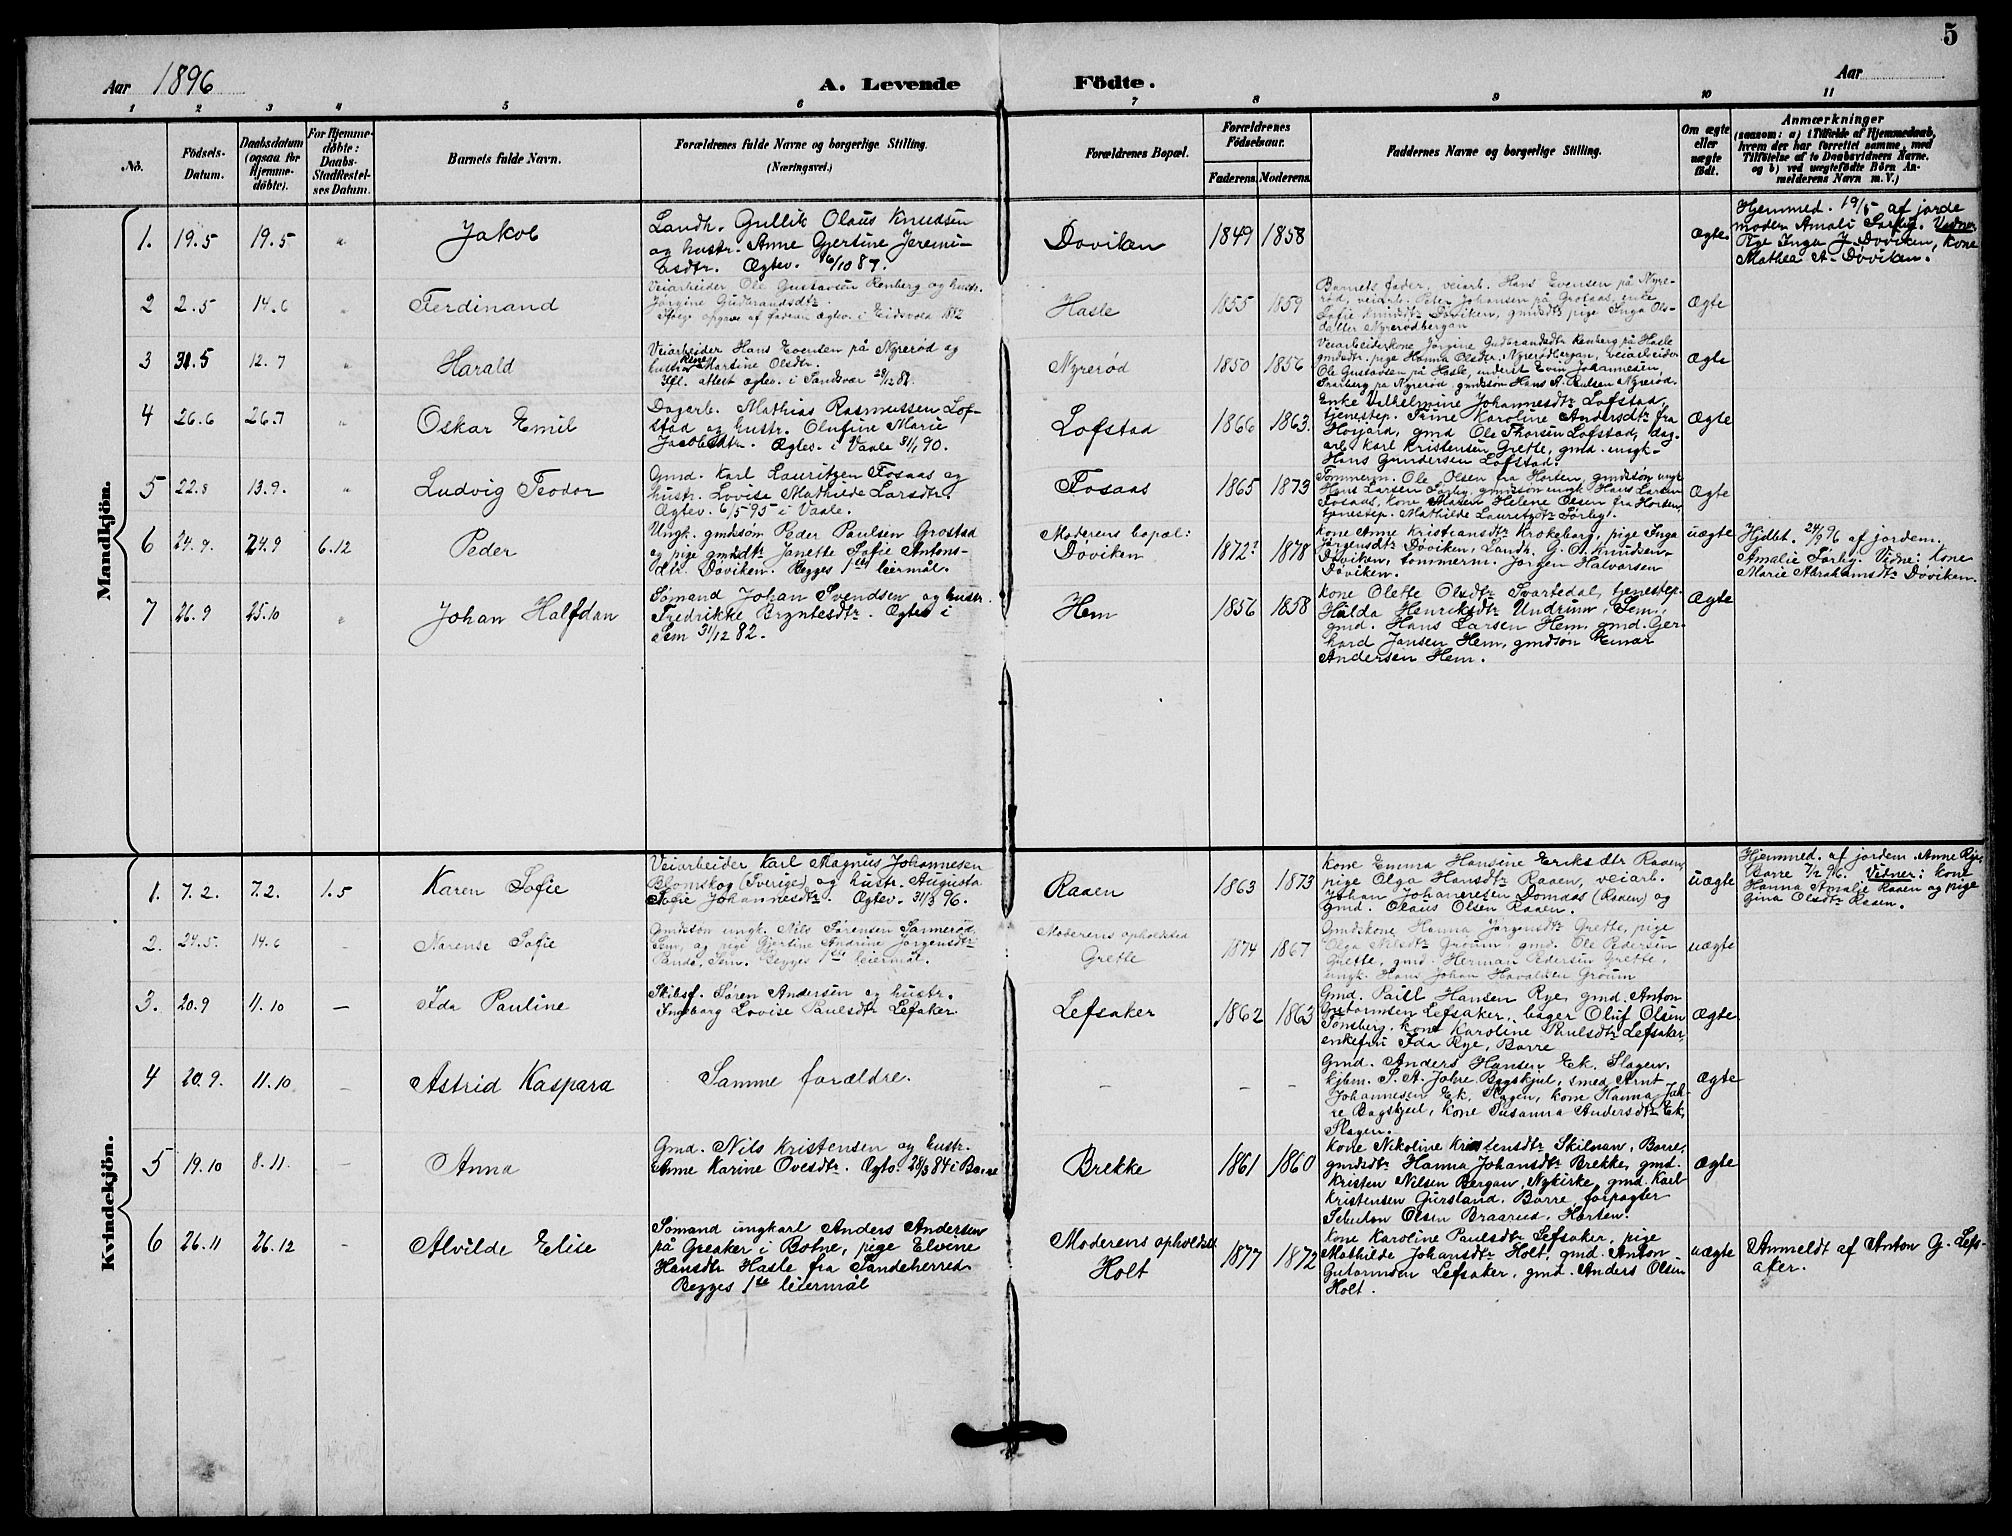 5
Aar 1896
A. Levende Födte.
Aar
1 2 3 4 5 6 7 8 9 10 11
No.
Födsels-
Datum.
Daabsdatum
(ogsaa for
Hjemme-
döbte).
For Hjemme-
döbte:
Daabs-
Stadfestel-
ses Datum.
Barnets fulde Navn.
Forældrenes fulde Navne og borgerlige Stilling.
(Næringsvei.)
Forældrenes Bopæl.
Forældrenes
Födselsaar.
Faderens. Moderens.
Faddernes Navne og borgerlige Stilling.
Om ægte
eller
uægte
födt.
Anmærkninger
(saasom: a) i Tilfælde af Hjemmedaab,
hvem der har forrettet samme, med
Tilföielse af to Daabsvidners Navne,
og b) ved uægtefödte Börn An-
melderens Navn m. V.)
Mandkjön.
1. 19.5 19.5 " Jakob
Landh. Gullik Olaus Knudsen
og hustr. Anne Gjertine Jeremi-
asdtr. Ægtev. 6/10 87.
Døviken 1849 1858
Ægte.
Hjemmed. 19/5 af jorde
moder Amali Sørby. Vidner
Pige Inga J. Døviken, kone
Mathea A. Døviken.
2 2.5 14.6 " Ferdinand
Veiarbeider Ole Gustavsen Renberg og hustr.
Jørgine Gudbrandsdtr.
Ifølge opgave af faderen ægtev. i Eidsvold 1882
Hasle 1855 1859
Barnets fader, veiarb. Hans Evensen på Nyre-
rød, veiarb. Peter Johansen på Grosaas, enke
Sofie Knudsdtr Døviken, gmdsdtr pige Inga Ols-
datter Nyrerødbergan
Ægte
3 30.5 12.7 " Harald
Veiarbeider Hans Evensen på Nyrerød og
hustr. Rene Martine Olsdtr.
Ifl. attest ægtev. i Sandsvær 28/12 82.
Nyrerød 1850 1856
Veiarbeiderkone Jørgine Gudbrandsdtr Renberg på Hasle
gmdsdtr. pige Hanna Olsdtr. Nyrerødbergan, veiarbeider
Ole Gustavsen på Hasle, underst Even Johannesen,
Skarberg på Nyrerød, gmdssøn Hans A. Paulsen Nyrerød.
Ægte
4 26.6 26.7 " Oskar Emil
Dagarb. Mathias Rasmussen Lof-
stad og hustr. Olufine Marie
Jacobsdtr. Ægtev. i Vaale 31/1 90.
Lofstad 1866 1863.
Enke Vilhelmine Johannesdtr Lofstad,
tjenestep. Trine Karoline Andersdtr fra
Hoijord, gmd Ole Thorsen Lofstad, dag-
arb Karl Kristensen Grette, gmd. ungk-
Hans Gundersen Lofstad.
Ægte
5 22.8 13.9. " Ludvig Teodor
Gmd. Karl Lauritzen Fosaas og
hustr. Lovise Mathilde Larsdtr.
Ægtev. 6/5 95 i Vaale.
Fosaas 1865 1873
Tømmerm. Ole Olsen fra Horten, gmdsøn ungk
Hans Larsen Sørby, gmdssøn ungk Hans Larsen
Fosaas, kone Maren Helene Olsen fra Horten,
tjenestep. Mathilde Lauritzdtr Sørby.
Ægte
6 24.9. 24.9 6.12 Peder
Ungk. gmdssøn Peder Paulsen Grostad
og pige gmdsdtr Janette Sofie Antons-
dtr. Døviken. Begges 1ste leiermål.
Moderens bopæl:
Døviken 1872? 1878
Kone Anne Kristiansdtr Krokeborg, pige Inga
Jørgensdtr Døviken, Landh. G. O. Knudsen
Døviken, tømmerm. Jørgen Halvorsen
Døviken.
uægte
Hjdbt. 24/9 96 af jordem.
Amalie Sørby. Vidne: Kone
Marie Abrahamsdtr Døviken.
7 26.9 25.10 " Johan Halfdan
Sømand Johan Svendsen og hustr.
Fredrikke Bryntesdtr. Ægtev i
Sem 31/12 82.
Hem 1856 1858
Kone Olette Olsdtr Svartedal, tjenestep.
Hilda Henriksdtr Undrum, Sem,
gmd. Hans Larsen Hem, gmd. Ger-
hard Jansen Hem, gmdsøn Einar
Andersen Hem.
Ægte
Kvindekjön.
1. 7.2. 7.2. 1.5 Karen Sofie
Veiarbeider Karl Magnus Johannesen
Blomskog (Sverige) og hustr. Augusta
Sofie Johannesdtr. Ægtev. 31/3 96.
Raaen 1863 1873
Kone Emma Hansine Eriksdtr Raaen,
pige Olga Hansdtr Raaen, veiarb.
Johan Johannesen Domdas (Raaen) og
gmd. Olaus Olsen Raaen.
uægte
Hjemmed. af jordem. Anne Rye,
Borre 7/2 96. Vidner: kone
Hanna Amalie Raaen og pige
Gina Olsdtr Raaen.
2. 24.5. 14.6 - Narense Sofie
Gmdssøn ungk. Nils Sørensen Sannerød,
Sem, og pige Gjertine Andrine Jørgensdtr
Sande, Sem. Begges 1ste leiermål.
Moderens opholdssted
Grette 1874 1867
Gmdskone Hanna Jørgensdtr Grette, pige
Olga Nilsdtr Groum, gmd. Ole Pedersen
Grette, gmd. Herman Pedersen Grette,
ungk. Hans Johan Havaldsen Groum
uægte
3. 20.9 11.10 - Ida Pauline
Skibsf. Søren Andersen og hustr.
Ingeborg Lovise Paulsdtr Lefsaker
Lefsaker 1862 1863
Gmd. Paul Hansen Rye, gmd. Anton
Gutormsen Lefsaker, bager Oluf Olsen
Tønsberg, kone Karoline Paulsdtr Lefsaker,
enkefru Ida Rye, Borre
Ægte
4 20.9. 11.10 - Astrid Kaspara
Samme forældre.
- - -
Gmd. Anders Hansen Ek, Slagen,
kjbm. S. A. Johre Bogskjul, smed Arnt
Johannesen Ek, Slagen, kone Hanna Joh-
re Bogskjul, kone Susanna Andersdtr Ek,
Slagen.
Ægte
5 19.10 8.11. - Anna
Gmd. Nils Kristensen og hustr.
Anne Karine Ovesdtr. Ægtev. 28/3 84 i Borre
Brekke 1861 1860
Kone Nikoline Kristensdtr Skilman, Borre,
gmdsdtr Hanna Johansdtr Brekke, gmd.
Kristen Nilsen Bergan, Nykirke, gmd. Karl
Kristensen Gursland, Borre, forpagter
Olsen Braarud, Horten.
Ægte
6 26.11 26.12 - Alvilde Elise
Sømand ungkarl Anders Andersen
på Greaker i Botne, pige Elvine
Hansdtr Hasle fra Sandeherred.
Begges 1ste leiermål
Moderens opholdsst
Holt 1877 1872
Kone Karoline Paulsdtr Lefsaker, pige
Mathilde Johansdtr Holt, gmd. Anton
Gutormsen Lefsaker, gmd. Anders Olsen
Holt.
uægte
Anmeldt af Anton G. Lefs-
aker.